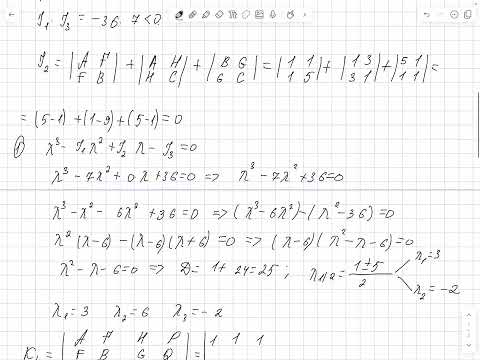 J₁ J₃ = -36·7 < 0
J₂ = |A F; F B| + |A H; H C| + |B G; G C| = |1 1; 1 5| + |1 3; 3 1| + |5 1; 1 1| =
= (5-1)+(1-9)+(5-1)=0
① λ³ - J₁λ² + J₂ λ - J₃ = 0
λ³ - 7λ² + 0λ + 36 = 0 => λ³ - 7λ² + 36 = 0
λ³ - λ² - 6λ² + 36 = 0 => (λ³ - 6λ²) - (λ² - 36) = 0
λ² (λ-6) - (λ-6)(λ+6) = 0 => (λ-6)(λ² - λ - 6) = 0
λ² - λ - 6 = 0 => D = 1 + 24 = 25 ; λ₁,₂ = (1±5)/2 λ₁ = 3 λ₂ = -2
λ₁ = 3 λ₂ = 6 λ₃ = -2
K₁ = |A F H P; F B G Q| = |1 1 1